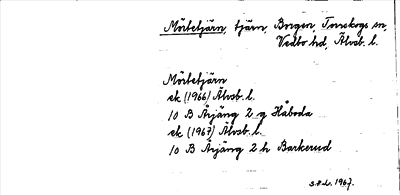 Mörtetjärn, tjärn, Borgen, Torrskogs sn,
Vedbo hd, Älvsb. l.
Mörtetjärn
ek (1966) Älvsb. l.
10 B Årjäng 2 g Håboda
ek (1967) Älvsb. l.
10 B Årjäng 2 h Barkerud
1967.